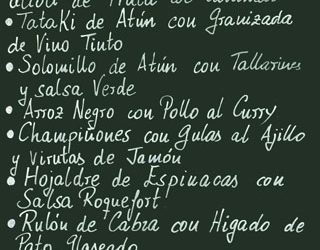 • Tataki de Atún con Granizada
de Vino Tinto
• Solomillo de Atún con Tallarines
y salsa Verde
• Arroz Negro con Pollo al Curry
• Champiñones con Gulas al Ajillo
y Virutas de Jamón
• Hojaldre de Espinacas con
Salsa Roquefort!
• Rulón de Cabra con Higado de
Pato Glaseado